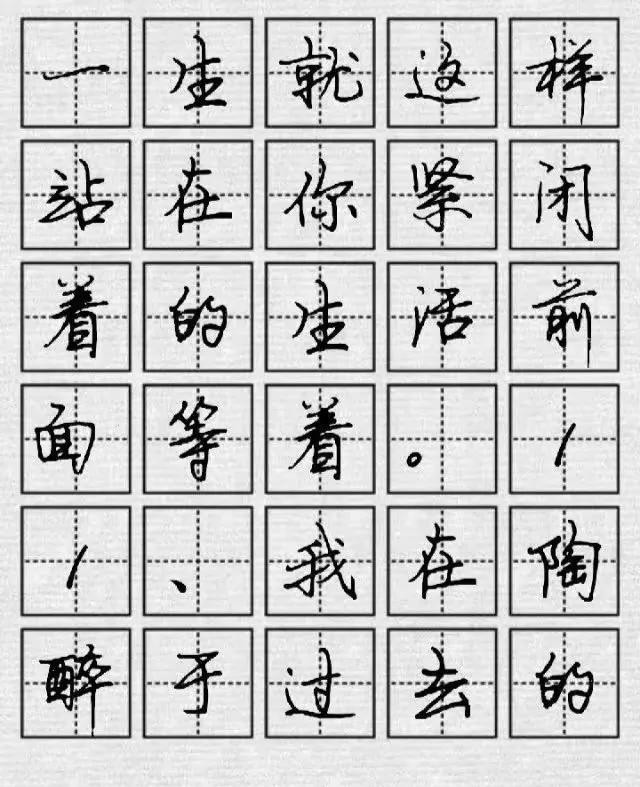 一生就这样
站在你紧闭
着的生活前
面等着。1
1、我在陶
醉于过去的